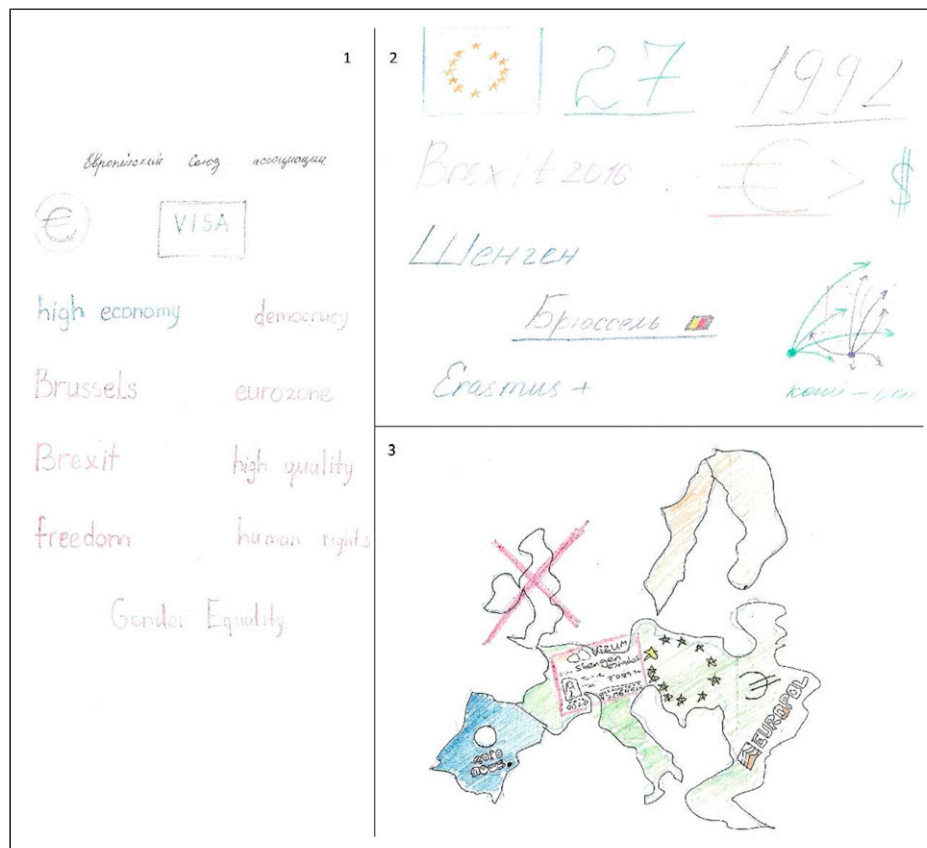 1
Европейский Союз ассоциации
€
VISA
high economy democracy
Brussels eurozone
Brexit high quality
freedom human rights
Gender Equality
2
27 1992
Brexit 2016 € > $
Шенген
Брюссель
Erasmus +
3
VIZUM
shengen
euro
news.
€
EUROPOL